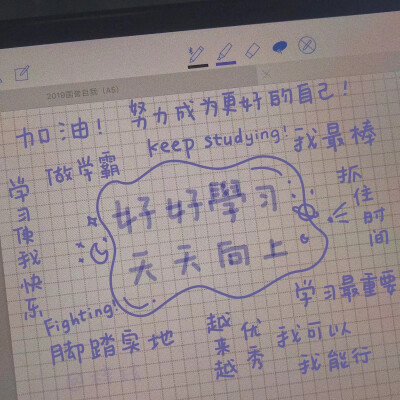 2019国考自我 (A5)
努力成为更好的自己!
加油!
keep studying!
我最棒
做学霸
抓住时间
学习使我快乐
好好學习
天天向上
Fighting!
学习最重要
脚踏实地
越来越优秀
我可以
我能行